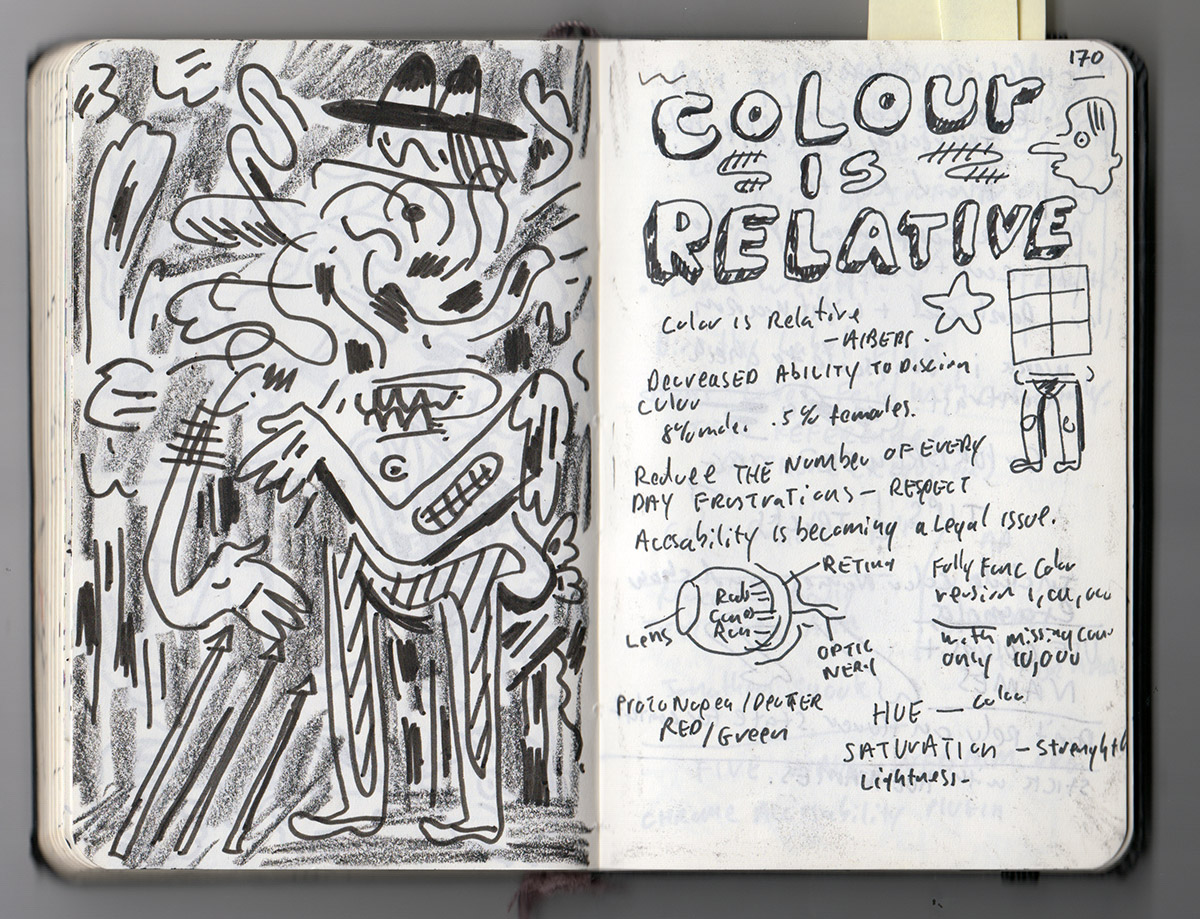 170
COLOUR
IS
RELATIVE
Color is Relative
- AlBERS.
DECREASED ABILITY TO Discion
Color
8% male. .5% females.
Reduce THE Number OF EVERY
DAY FRUSTRATIONS - RESPECT
Accsability is becoming a Legal issue.
RETINA
Lens
OPTIC
NERV
Fully Func Color
version 1,000,000
with missing Cone
only 10,000
ProtoNopea / DEUTER
RED/Green
HUE — Color
SATURATION - Strenghth
Lightness-